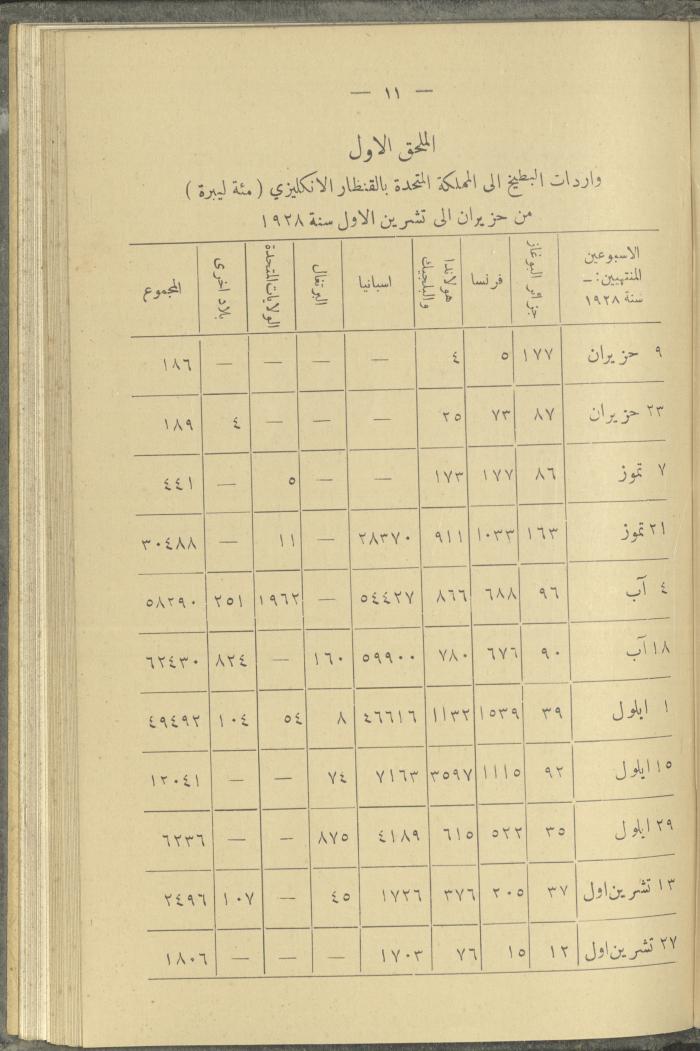 — ١١ —
الملحق الاول
واردات البطيخ الى المملكة المتحدة بالقنطار الانكليزي ( مئة ليبرة )
من حزيران الى تشرين الاول سنة ١٩٢٨
الاسبوعين المنتهيين: – سنة ١٩٢٨ جزائر البوغاز فرنسا هولاندا والبلجيك اسبانيا البرتغال الولايات المتحدة بلاد اخرى المجموع
٩ حزيران ١٧٧ ٥ ٤ — — — — ١٨٦
٢٣ حزيران ٨٧ ٧٣ ٢٥ — — — ٤ ١٨٩
٧ تموز ٨٦ ١٧٧ ١٧٣ — — ٥ — ٤٤١
٢١ تموز ١٦٣ ١٠٣٣ ٩١١ ٢٨٣٧٠ — ١١ — ٣٠٤٨٨
٤ آب ٩٦ ٦٨٨ ٨٦٦ ٥٤٤٢٧ — ١٩٦٢ ٢٥١ ٥٨٢٩٠
١٨ آب ٩٠ ٦٧٦ ٧٨٠ ٥٩٩٠٠ ١٦٠ — ٨٢٤ ٦٢٤٣٠
١ ايلول ٣٩ ١٥٣٩ ١١٣٢ ٤٦٦١٦ ٨ ٥٤ ١٠٤ ٤٩٤٩٢
١٥ ايلول ٩٢ ١١١٥ ٣٥٩٧ ٧١٦٣ ٧٤ — — ١٢٠٤١
٢٩ ايلول ٣٥ ٥٢٢ ٦١٥ ٤١٨٩ ٨٧٥ — — ٦٢٣٦
١٣ تشرين اول ٣٧ ٢٠٥ ٣٧٦ ١٧٢٦ ٤٥ — ١٠٧ ٢٤٩٦
٢٧ تشرين اول ١٢ ١٥ ٧٦ ١٧٠٣ — — — ١٨٠٦